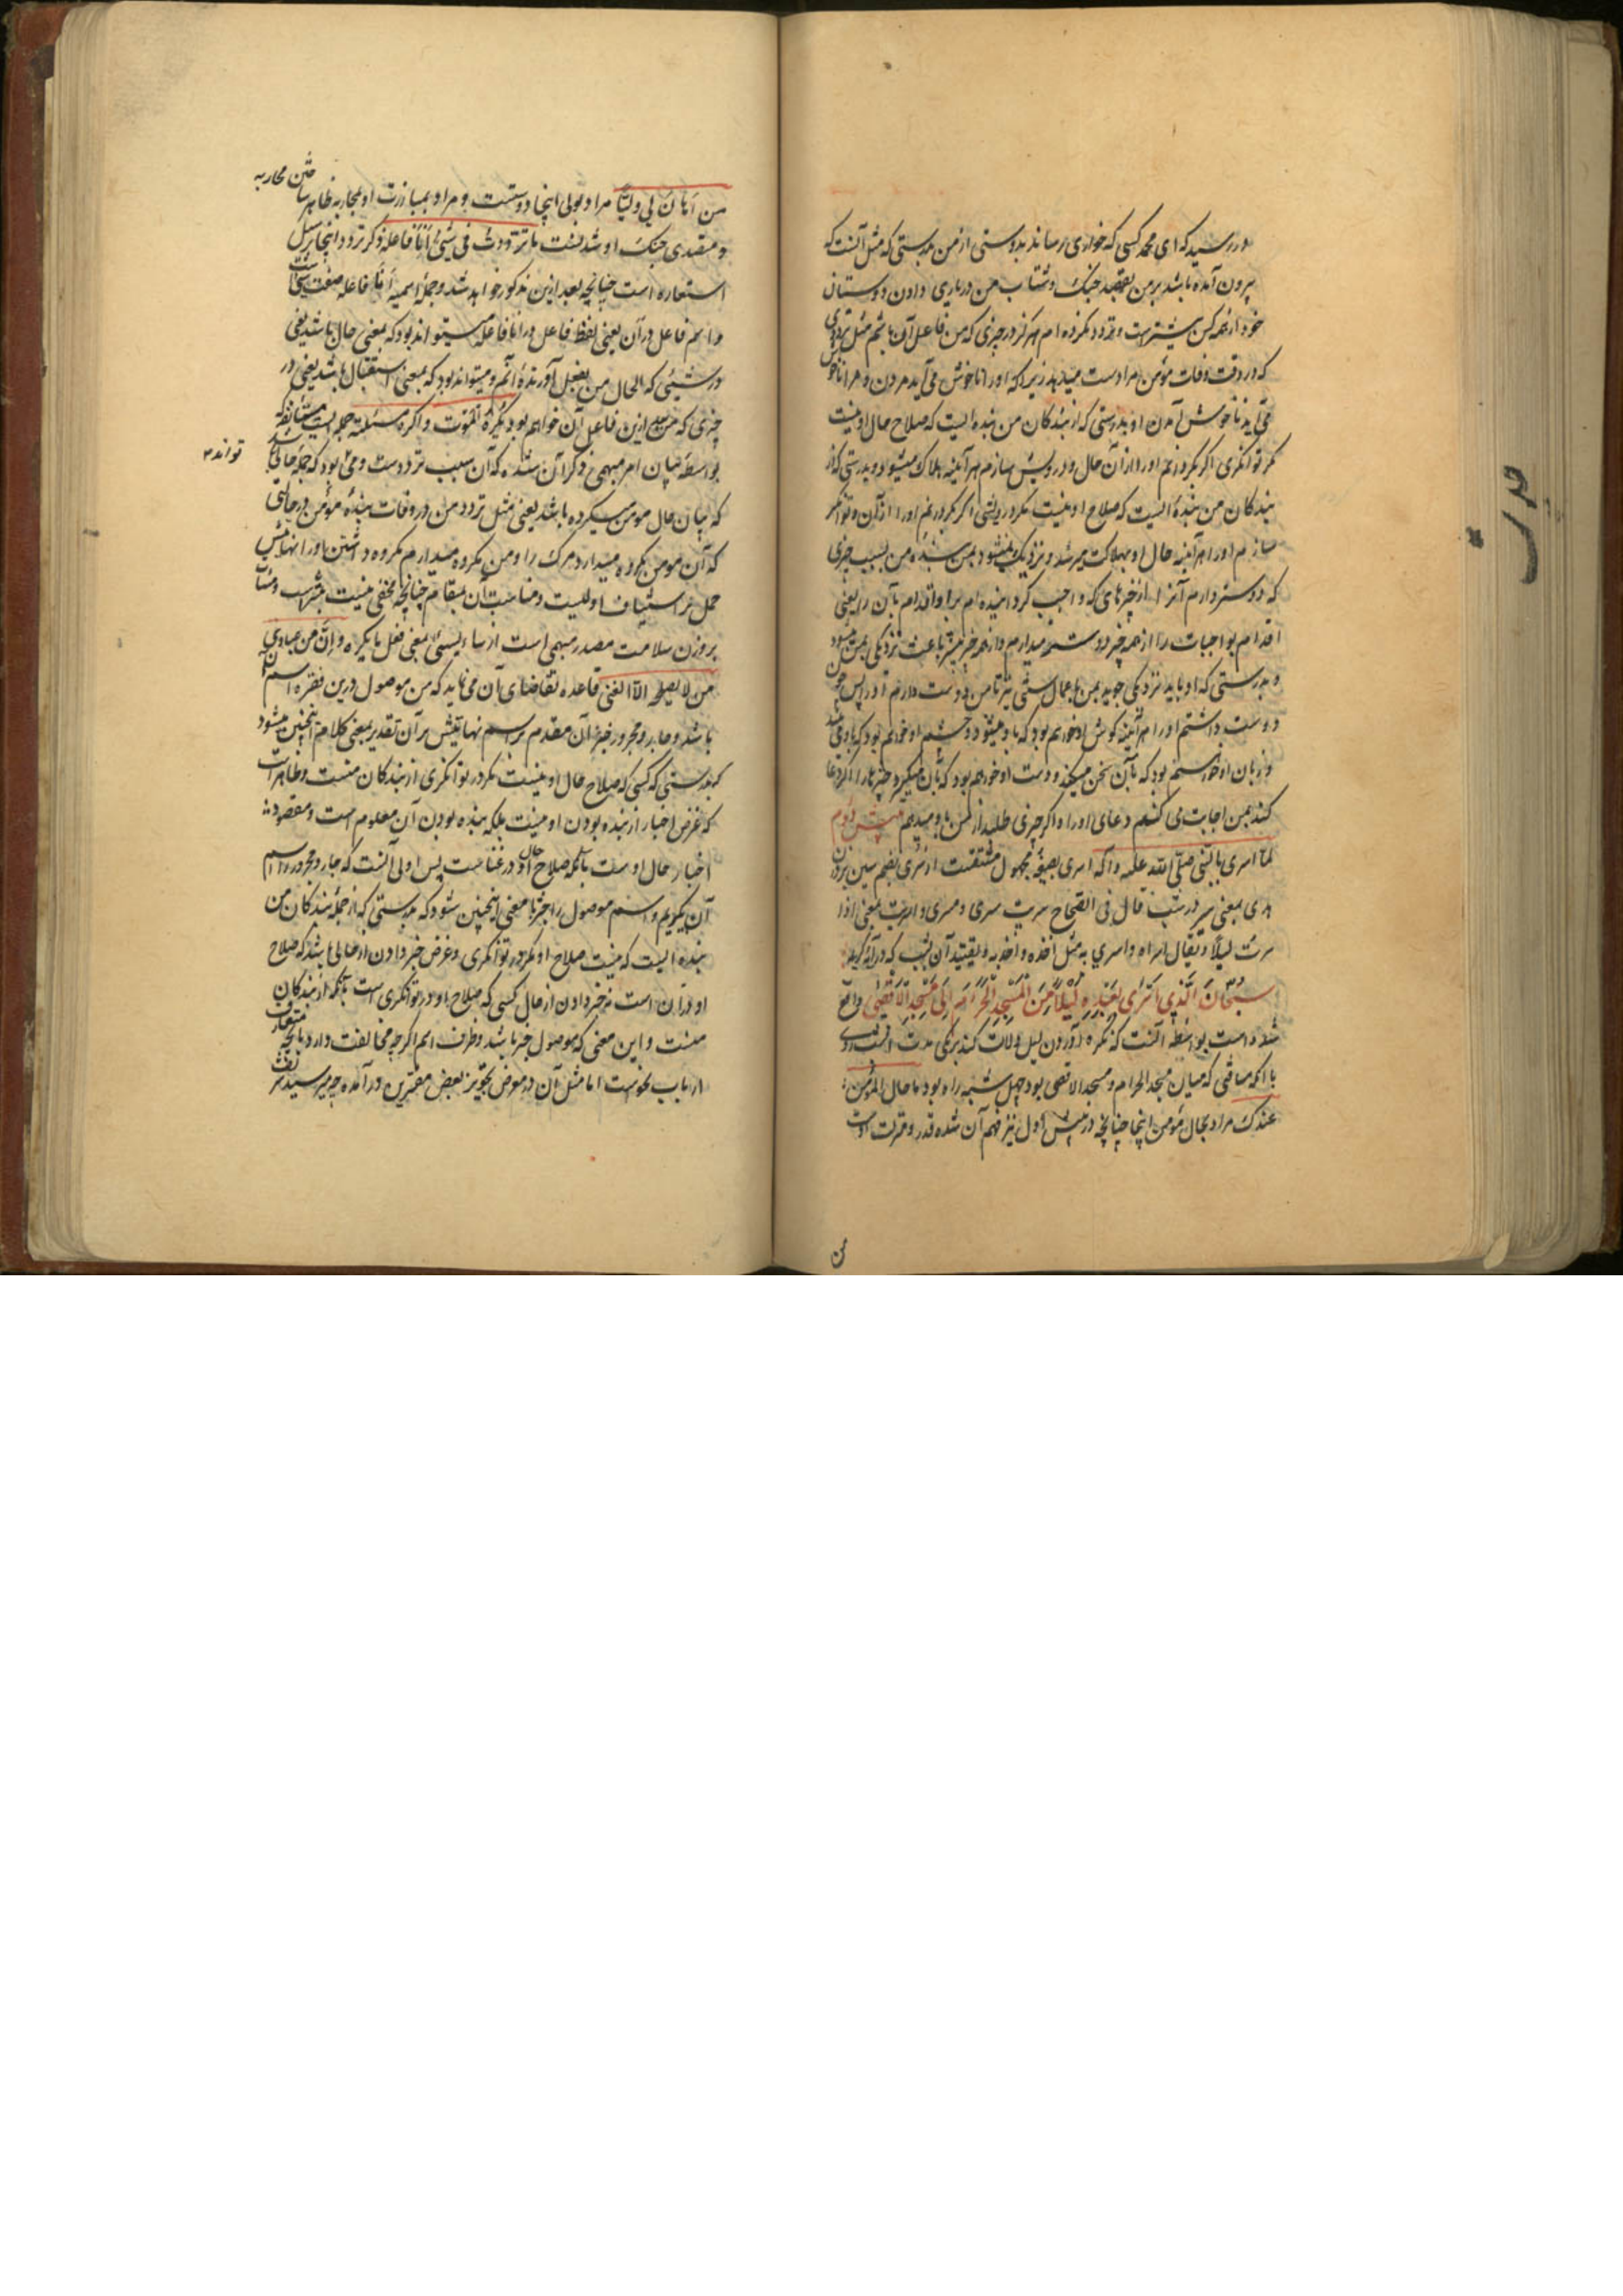 در رسید که ای محمد کسی که خواری رساند بدوستی از من بدرستی که مثل آنست که
بیرون آمده باشد بر من بقصد جنک و شتاب من در یاری دادن دوستان
خود از همه کس بیشترست و تردد نکرده ام هرکز در چیزی که من فاعل آن باشم مثل ترددی
که در وقت وفات مؤمن مرا دست میدهد زیرا که او را ناخوش می آید مردن و مرا ناخوش
می آید ناخوش آمدن او بدرستی که از بندکان من بنده ایست که صلاح حال او نیست
مکر توانکری اکر بکردانم او را از آن حال و درویش سازم هر آینه هلاک میشود و بدرستی که از
بندکان من بندهٔ ایست که صلاح او نیست مکر درویشی اکر بکردانم او را از آن و توانکر
سازم او را هر آینه حال او بهلاکت میرسد و نزدیک نمیشود بمن بنده من بسبب چیزی
که دوستر دارم آنرا از چیزهای که واجب کردانیده ام برا و اقدام بآن را یعنی
اقدام بواجبات را از همه چیز دوست میدارم و از همه چیز بیشتر باعث نزدیکی بمن میشود
و بدرستی که او باید نزدیکی جوید بمن باعمال سنتی نیز تا من دوست دارم او را پس چون
دوست داشتم او را هر آینه کوش او خواهم بود که باو میشنود و چشم او خواهم بود که باو می بیند
و زبان او خواهم بود که بآن سخن میکند و دست او خواهم بود که بآن میکیرد چیزها را اکر دعا
کند بمن اجابت می کنم دعای او را و اکر چیزی طلبد از من باو میدهم بینش دوم
لما اسری بالنبی صلی الله علیه و آله اسری بصیغه مجهول مشتقست از سری بضم سین بر وزن
هدی بمعنی سیر در شب قال فی الصحاح سریت سری و مسری و اسریت بمعنی اذا
سرت لیلا و یقال اسراه و اسری به مثل اخذه و اخذ به و تقیید آن بشب که در آیه کریمه
سبحان الذی اسری بعبده لیلا من المسجد الحرام الی المسجد الاقصی واقع
شده است بواسطه آنست که نکره آوردن لیل دلالت کند برکمی مدت
با آنکه مسافتی که میان مسجد الحرام و مسجد الاقصی بود چهل شبه راه بود ما حال المؤمن
عندک مراد بحال مؤمن اینجا چنانچه در بینش اول نیز فهم آن شده قدر و منزلت اوست
حدیث
من اهان لی ولیا مراد بولی اینجا دوستست و مراد بمبارزت او بمحاربه ظاهر ساختن محاربه
و متصدی جنک او شدنست ما ترددت فی شیء انا فاعله ذکر تردد اینجا بر سبیل
استعاره است چنانچه بعد ازین مذکور خواهد شد و جملهٔ اسمیه انا فاعله صفت شیء است
و اسم فاعل در آن یعنی لفظ فاعل در انا فاعله میتواند بود که بمعنی حال باشد یعنی
در شیئی که الحال من بفعل آورندهٔ آنم و میتواند بود که بمعنی استقبال باشد یعنی در
چیزی که من بعد ازین فاعل آن خواهم بود یکره الموت و اکره مسائته جمله ایست مستأنفه که
بواسطه بیان امر مبهمی ذکر آن شده که آن سبب ترددست و می تواند بود که جمله حالیه باشد
که بیان حال مومن میکرده باشد یعنی مثل تردد من در وفات بندهٔ مؤمن در حالتی
که آن مومن مکروه میدارد مرک را و من مکروه میدارم مکروه داشتن او را نهایتش
حمل بر استیناف اولیست و مناسبت آن بمقام چنانچه مخفی نیست بیشترست و مسائت
بر وزن سلامت مصدر میمی است از ساء یسوء بمعنی فعل ما یکره و ان من عبادی
من لا یصلحه الا الغنی قاعده تقاضای آن می نماید که من موصول درین فقره اسم ان
باشد و جار و مجرور خبر آن مقدم بر اسم نهایتش بر آن تقدیر بمعنی کلام اینچنین میشود
که بدرستی که کسی که صلاح حال او نیست مکر در توانکری از بندکان منست و ظاهر است
که غرض اخبار از بنده بودن او نیست بلکه بنده بودن آن معلوم است و مقصود
اخبار حال اوست بآنکه صلاح حال او در غناست پس اولی آنست که جار و مجرور را اسم
آن بکویم و اسم موصول را خبر تا معنی اینچنین شود که بدرستی که از جملهٔ بندکان من
بنده ایست که نیست صلاح او مکر در توانکری و غرض خبر دادن از حالی باشد که صلاح
او در آن است نه خبر دادن از حال کسی که صلاح او در توانکری است بآنکه از بندکان
منست و این معنی که موصول خبر باشد و ظرف اسم اکر چه مخالفت دارد بآنچه متعارف
ارباب نحوست اما مثل آن در معرض تجویز بعض مفسرین در آمده چه میر سید شریف